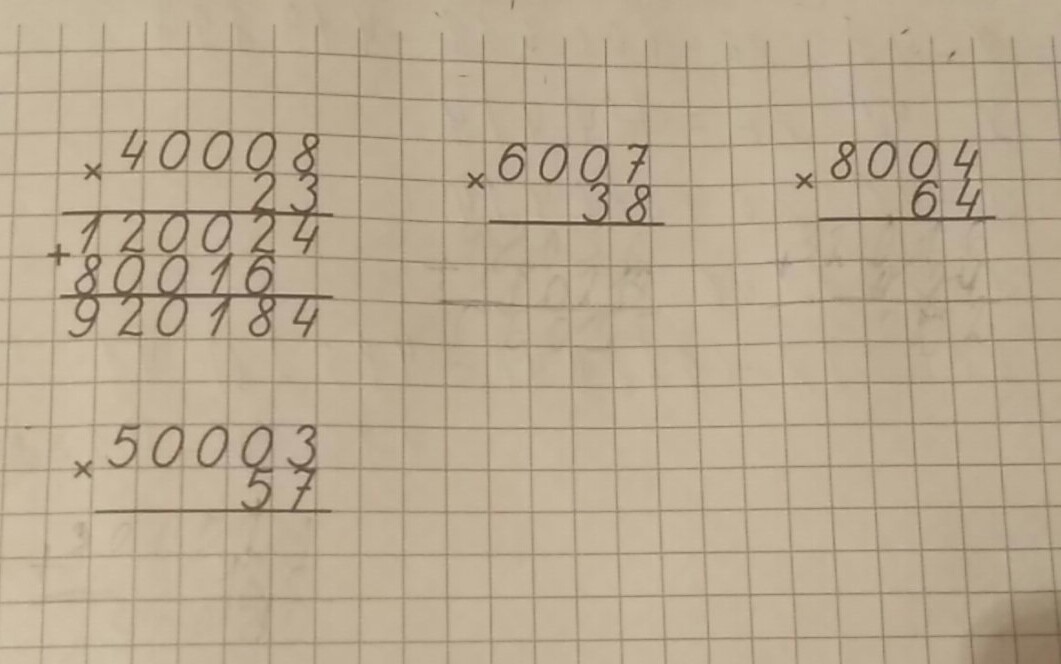 × 40008
23
+ 120024
80016
920184
× 6007
38
× 8004
64
× 50003
57